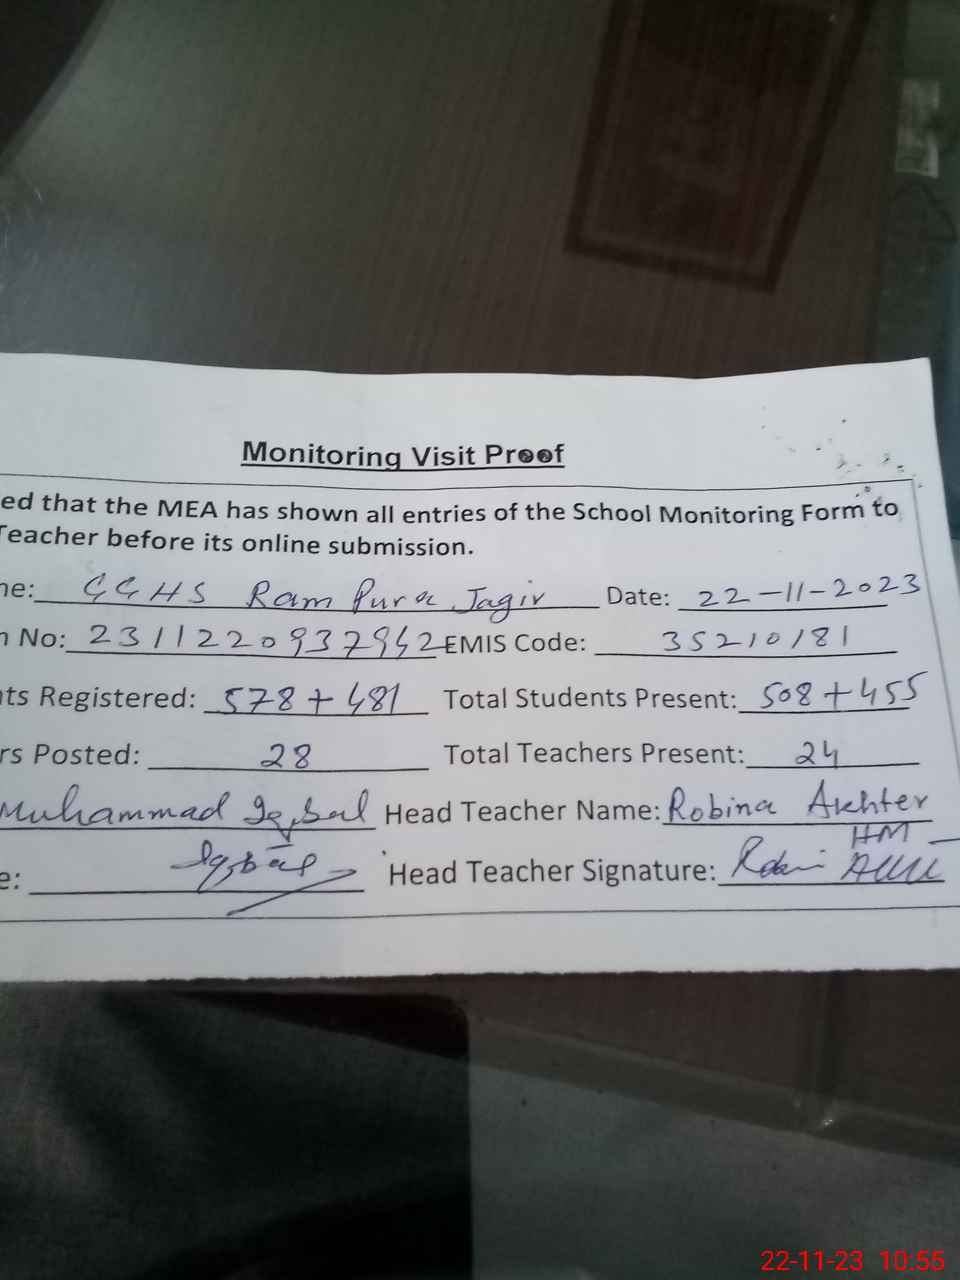 Monitoring Visit Proof
ed that the MEA has shown all entries of the School Monitoring Form to
Teacher before its online submission.
me: GGHS Ram Pura Jagir Date: 22-11-2023
n No: 2311220937942 EMIS Code: 35210181
ts Registered: 578+481 Total Students Present: 508+455
rs Posted: 28 Total Teachers Present: 24
Muhammad Iqbal Head Teacher Name: Robina Akhter
HM
e: Iqbal Head Teacher Signature:
22-11-23 10:55